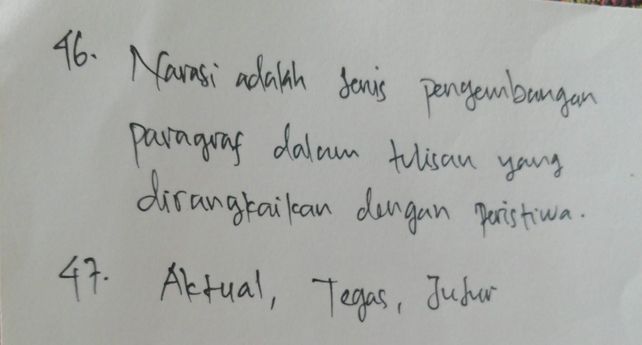 46. Narasi adalah jenis pengembangan
paragraf dalam tulisan yang
dirangkaikan dengan peristiwa.
47. Aktual, Tegas, Jujur